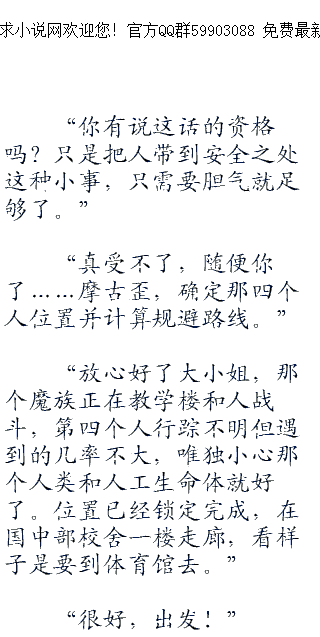 求小说网欢迎您！官方QQ群59903088 免费最新
“你有说这话的资格
吗？只是把人带到安全之处
这种小事，只需要胆气就足
够了。”
“真受不了，随便你
了……摩古歪，确定那四个
人位置并计算规避路线。”
“放心好了大小姐，那
个魔族正在教学楼和人战
斗，第四个人行踪不明但遇
到的几率不大，唯独小心那
个人类和人工生命体就好
了。位置已经锁定完成，在
国中部校舍一楼走廊，看样
子是要到体育馆去。”
“很好，出发！”